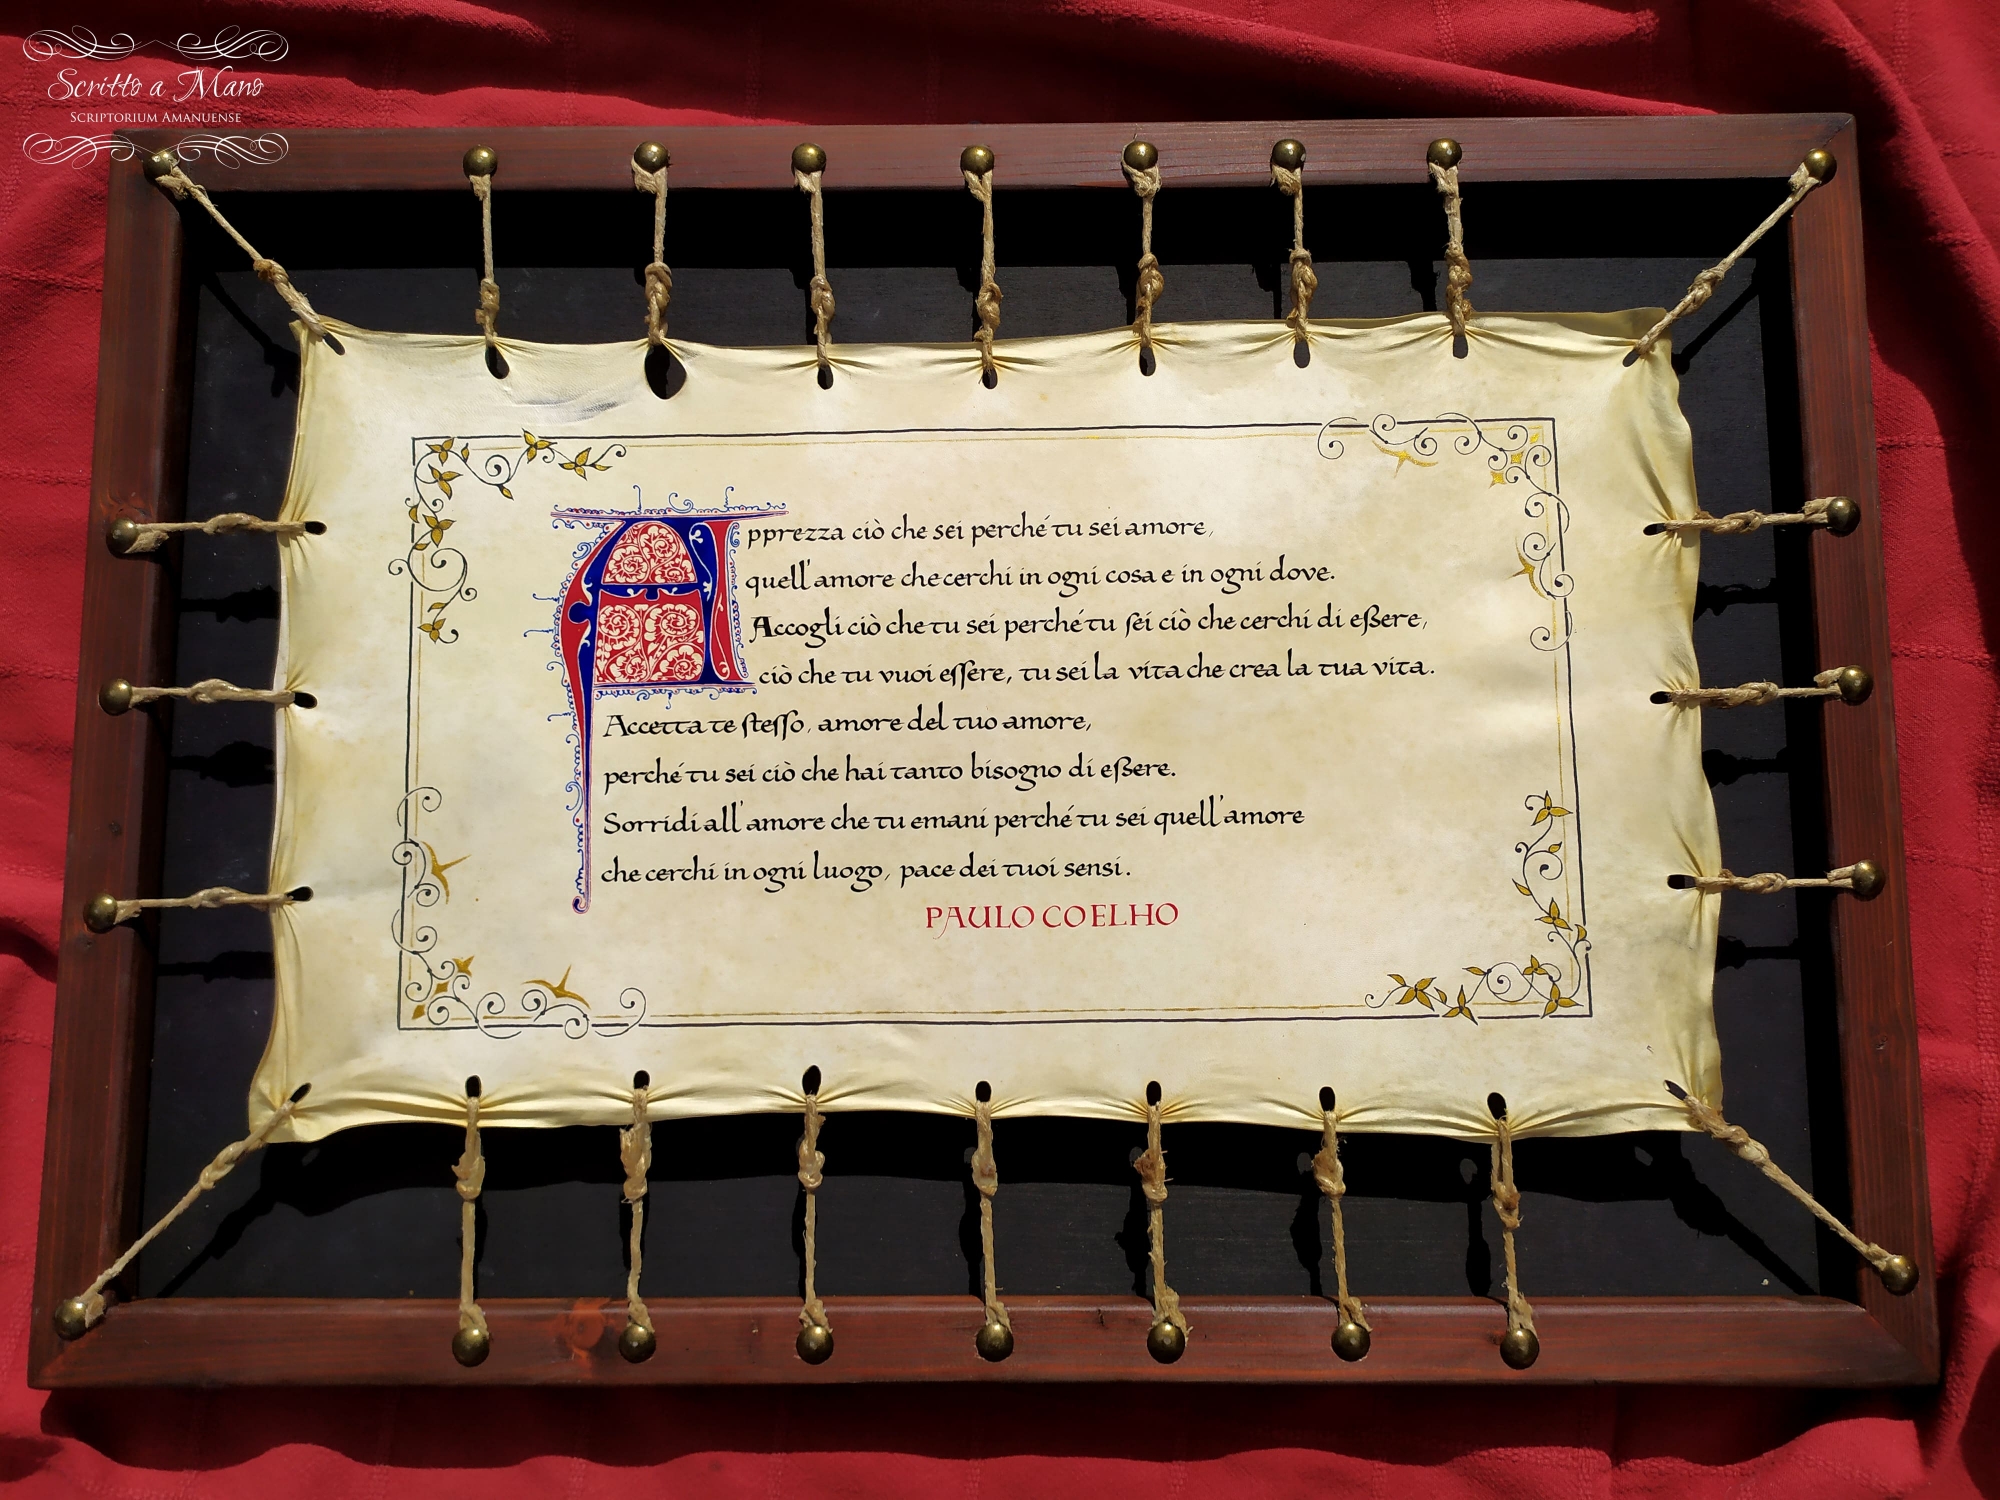 Scritto a Mano
SCRIPTORIUM AMANUENSE
Apprezza ciò che sei perché tu sei amore,
quell'amore che cerchi in ogni cosa e in ogni dove.
Accogli ciò che tu sei perché tu ſei ciò che cerchi di eßere,
ciò che tu vuoi eſſere, tu sei la vita che crea la tua vita.
Accetta te ſteſſo, amore del tuo amore,
perché tu sei ciò che hai tanto bisogno di eßere.
Sorridi all'amore che tu emani perché tu sei quell'amore
che cerchi in ogni luogo, pace dei tuoi sensi.
PAULO COELHO